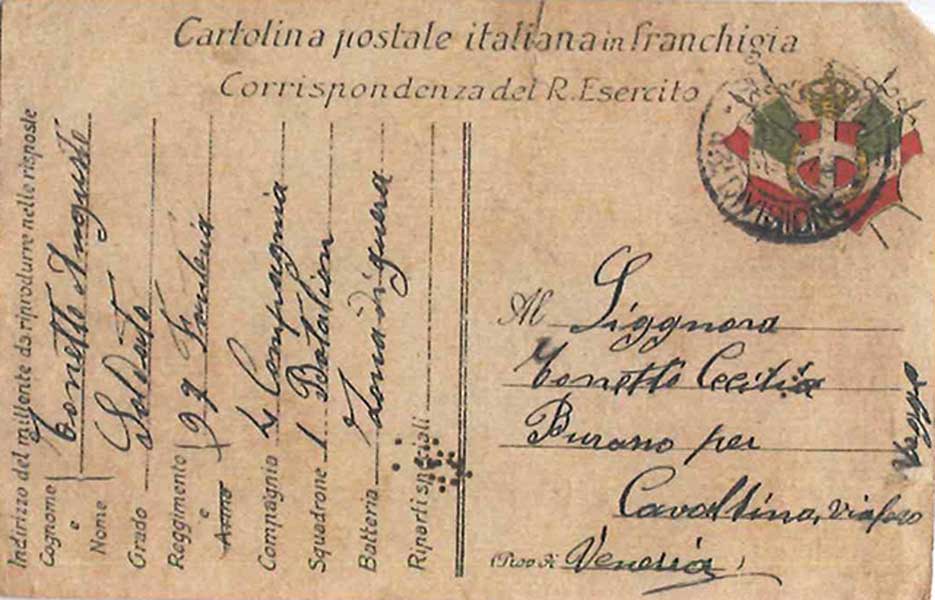 Cartolina postale italiana in franchigia
Corrispondenza del R. Esercito
DIVISIONE
Indirizzo del mittente da riprodurre nelle risposte
Cognome e Nome Tonetto Auguste
Grado Soldato
Reggimento e Arma 97 Fanteria
Compagnia 4 Compagnia
Squadrone 1 Batalion
Batteria Zona di guera
Riparti speciali
Al Siggnora
Tonetto Cecilia
Burano per
Cavallino, via foro
(Prov. di Venesia)